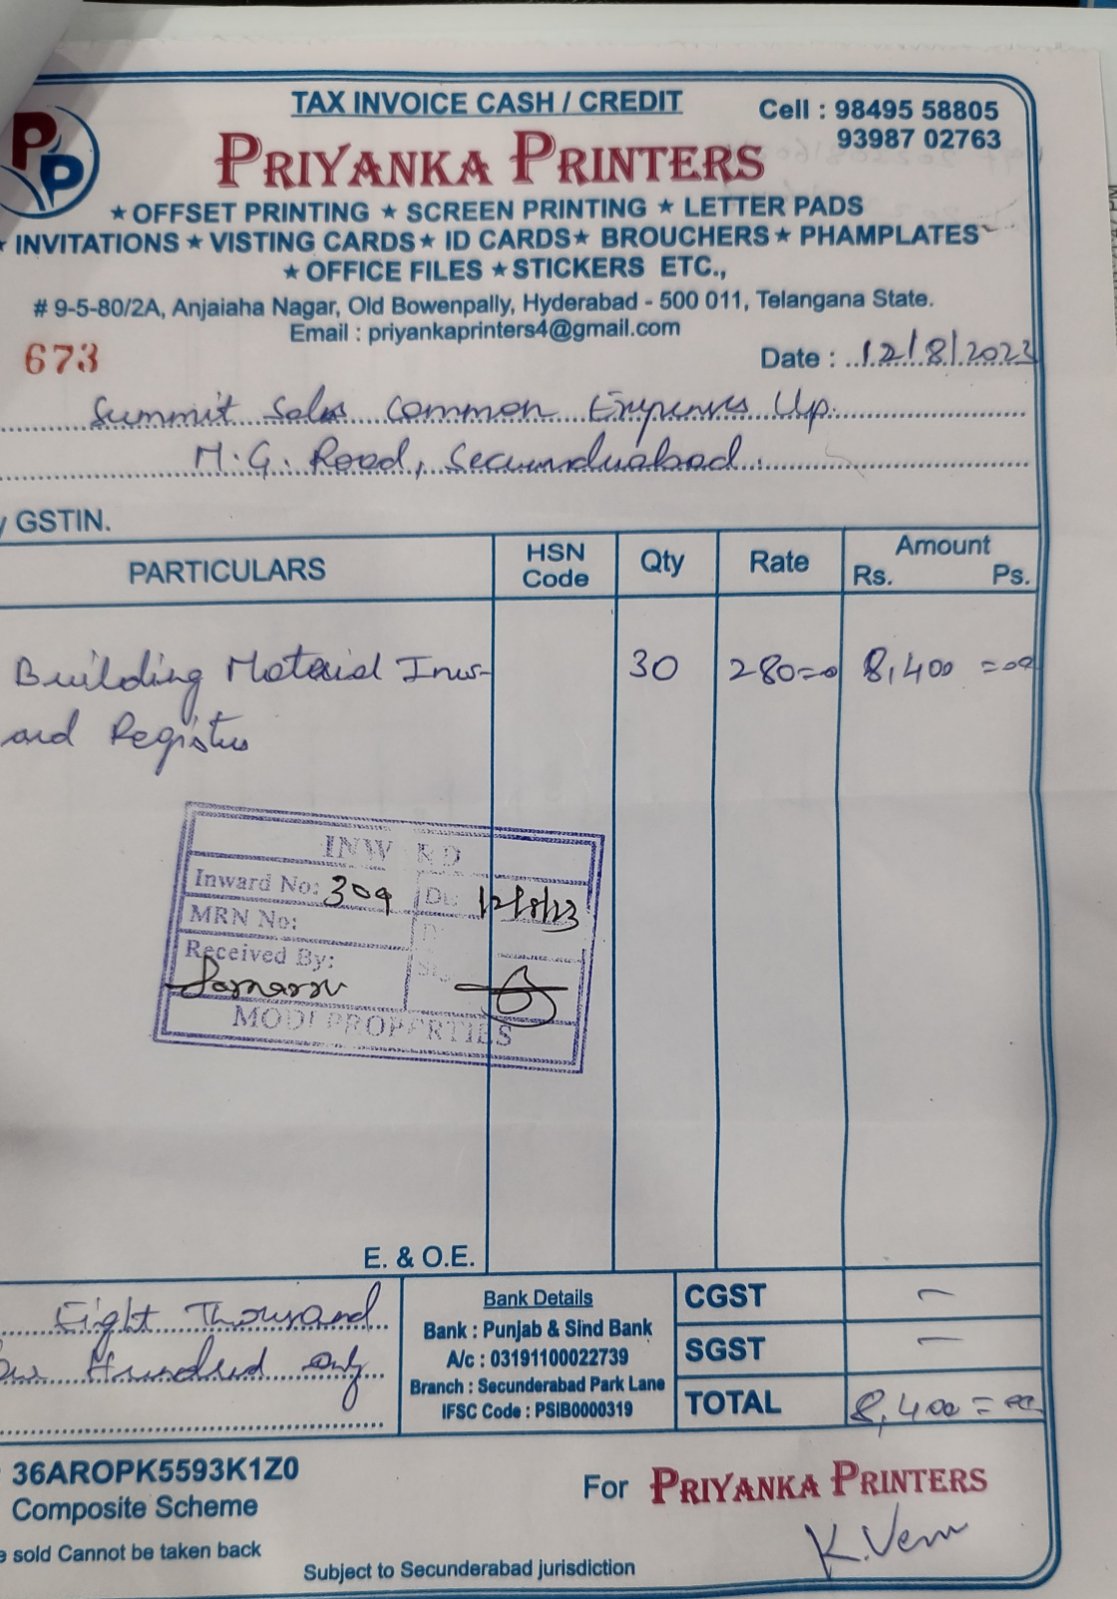 TAX INVOICE CASH / CREDIT
Cell : 98495 58805
93987 02763
PP
PRIYANKA PRINTERS
★ OFFSET PRINTING ★ SCREEN PRINTING ★ LETTER PADS
★ INVITATIONS ★ VISTING CARDS ★ ID CARDS ★ BROUCHERS ★ PHAMPLATES
★ OFFICE FILES ★ STICKERS ETC.,
# 9-5-80/2A, Anjaiaha Nagar, Old Bowenpally, Hyderabad - 500 011, Telangana State.
Email : priyankaprinters4@gmail.com
673
Date : 12/8/2023
Summit Sales Common Expenses
M.G. Road, Secunderabad.
GSTIN.
PARTICULARS HSN Code Qty Rate Amount Rs. Ps.
Building Material Inw- 30 280=0 8,400 =00
ard Registers
INWARD
Inward No: 309 Dt: 12/8/23
MRN No:
Received By:
MODI PROPERTIES
E. & O.E.
Eight Thousand
Hundred only
Bank Details
Bank : Punjab & Sind Bank
A/c : 03191100022739
Branch : Secunderabad Park Lane
IFSC Code : PSIB0000319
CGST –
SGST –
TOTAL 8,400=00
36AROPK5593K1Z0
Composite Scheme
sold Cannot be taken back
For PRIYANKA PRINTERS
Subject to Secunderabad jurisdiction